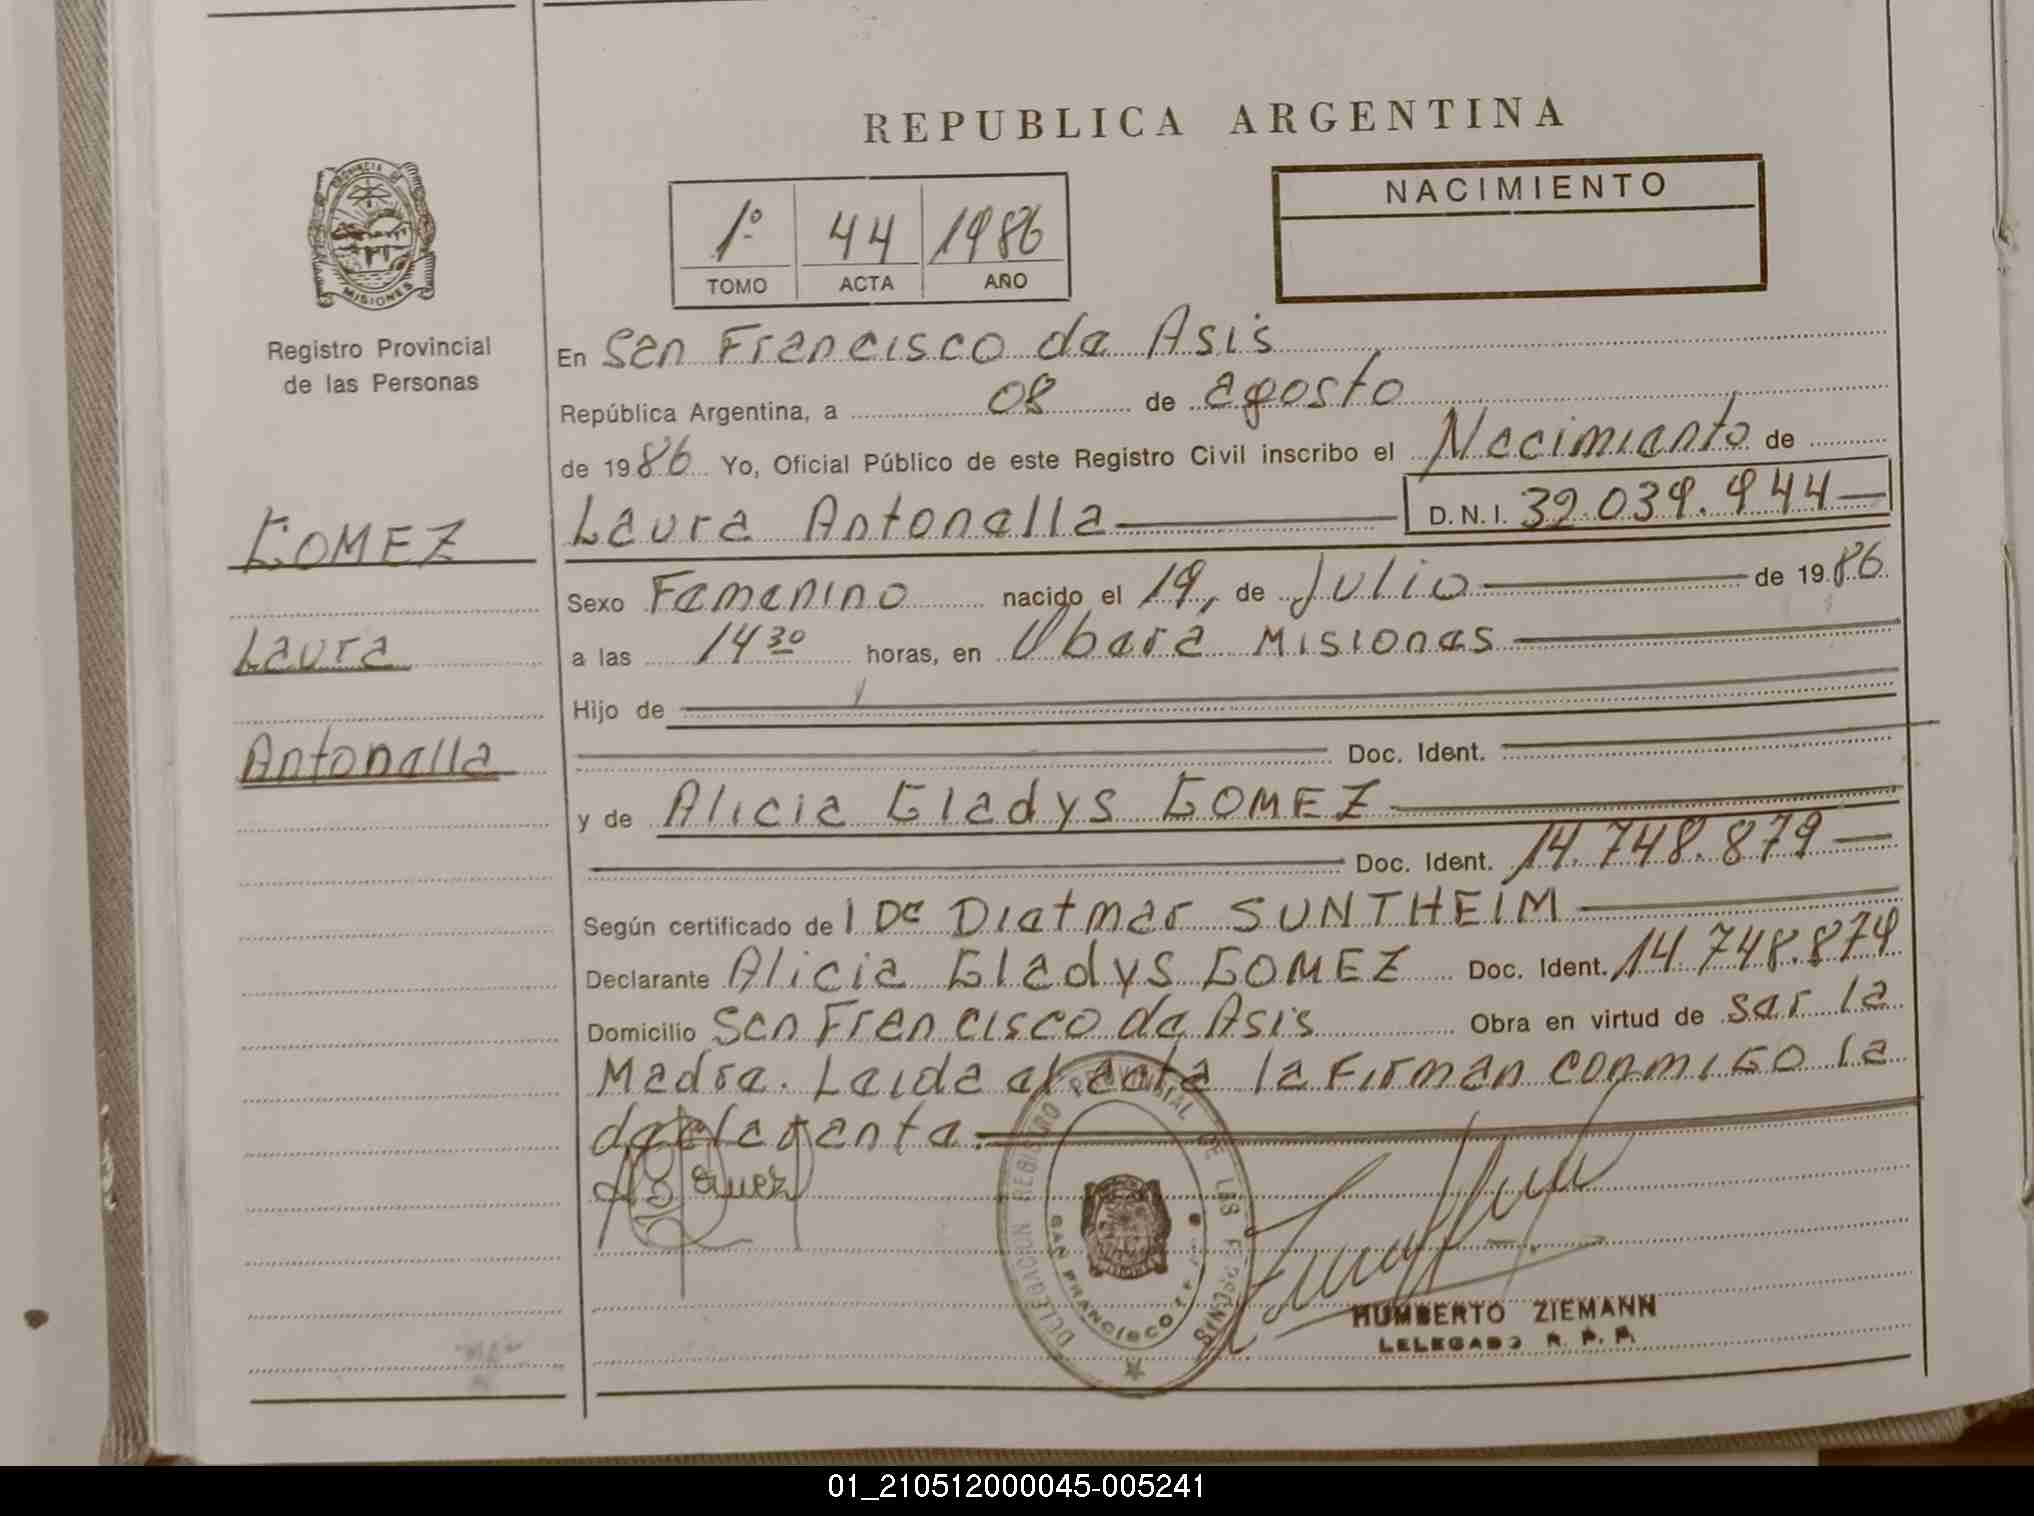 REPUBLICA ARGENTINA
PROVINCIA DE
MISIONES
Registro Provincial
de las Personas
1º 44 1986
TOMO ACTA AÑO
NACIMIENTO
En San Francisco de Asis
República Argentina, a 08 de agosto
de 1986 Yo, Oficial Público de este Registro Civil inscribo el Nacimiento de
Laura Antonella D.N.I. 32.039.944
GOMEZ
Laura
Antonella
Sexo Femenino nacido el 19, de Julio de 1986
a las 14 30 horas, en Obera Misiones
Hijo de
Doc. Ident.
y de Alicia Gladys GOMEZ
Doc. Ident. 14.748.879
Según certificado de l De Dietmar SUNTHEIM
Declarante Alicia Gladys GOMEZ Doc. Ident. 14.748.879
Domicilio San Francisco de Asis Obra en virtud de ser la
Madre. Leida el acta la Firman conmigo la
declarante.
DELEGACION REGISTRO PROVINCIAL DE LAS PERSONAS
SAN FRANCISCO DE ASIS
HUMBERTO ZIEMANN
DELEGADO R. P. P.
01_210512000045-005241